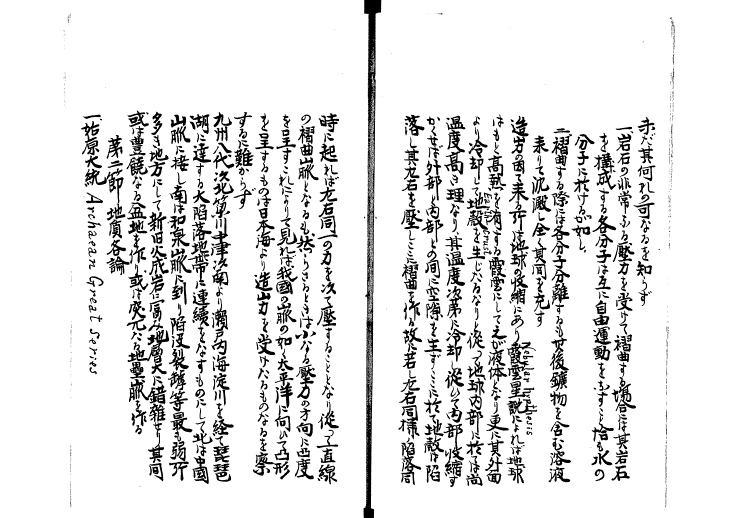 未だ其何れの可なるを知らず
一岩石の非常なる壓力を受けて褶曲する場合には其岩石
を構成する各分子は互に自由運動をなすこと恰も水の
分子に於けるが如し
二褶曲する際には各分子分離するも其後鑛物を含む溶液
来りて沈澱し全く其間を充す
造山力の因て来る所は地球の收縮にあり霞雲星説によれば地球
Nebular hypothesis
はもと高熱を有する霞雲にして之が液体となり更に其外面
より冷却して地殻を生じたるなり従つて地球内部に於ては尚
温度高き理なり其温度次第に冷却し従いて内部收縮す
かくせば外部と内部との間に空隙を生ずここに於て地殻は陥
落し其左右を壓しここに褶曲を作る故に若し左右同様に陥落同
時に起れば左右同一の力を以て壓することとなり従つて直線
の褶曲山脈となるも然らざるときは小なる壓力の方向に凸度
を呈すこれによりて見れば我國の山脈の如く太平洋に向いて凸形
を呈するものは日本海より造山力を受けたるものなるを察
するに難からず
九州八代
より瀬戸内海淀川を経て琵琶
湖に達する大陥落地帯に連續をなすものにして北は中國
山脈に接し南は和泉山脈に到り陥没裂罅等最も弱所
多き地方にして新旧火成岩に富み地層大に錯雑せり其間
或は豊饒なる盆地を作り或は
なる地壘山脈を作る
第二節 地質各論
一始原大統 Archaean Great Series